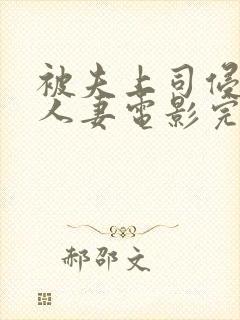 被夫上司侵
人妻电影完
郝邵文